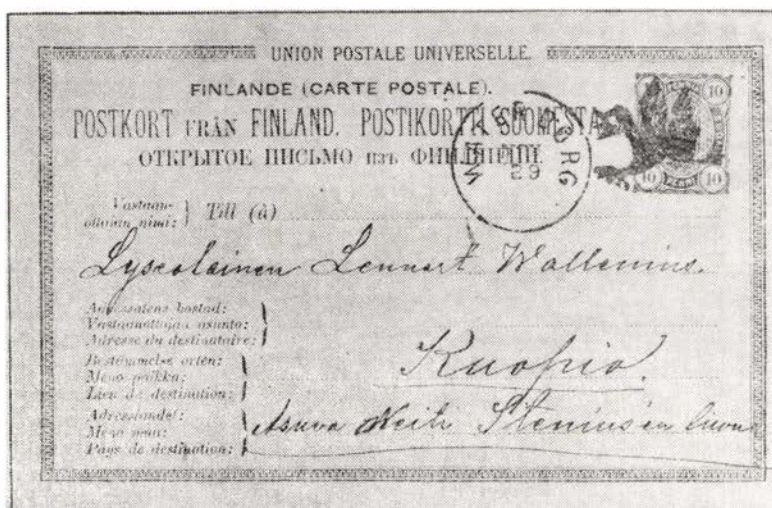 UNION POSTALE UNIVERSELLE.
FINLANDE (CARTE POSTALE).
POSTKORT FRÅN FINLAND. POSTIKORTTI SUOMESTA
ОТКРЫТОЕ ПИСЬМО изъ
10 10
10 PENNI 10
BORG
29
Vastaan-
ottajan nimi: } Till (à)
Lyseolainen Lennart Wallenius.
Adressatens bostad:
Vastaanottajan asunto:
Adresse du destinataire:
Kuopio.
Bestämmelse orten:
Meno paikka:
Lieu de destination:
Adresslandet:
Meno maa:
Pays de destination:
Asuva Neiti Stenius'en